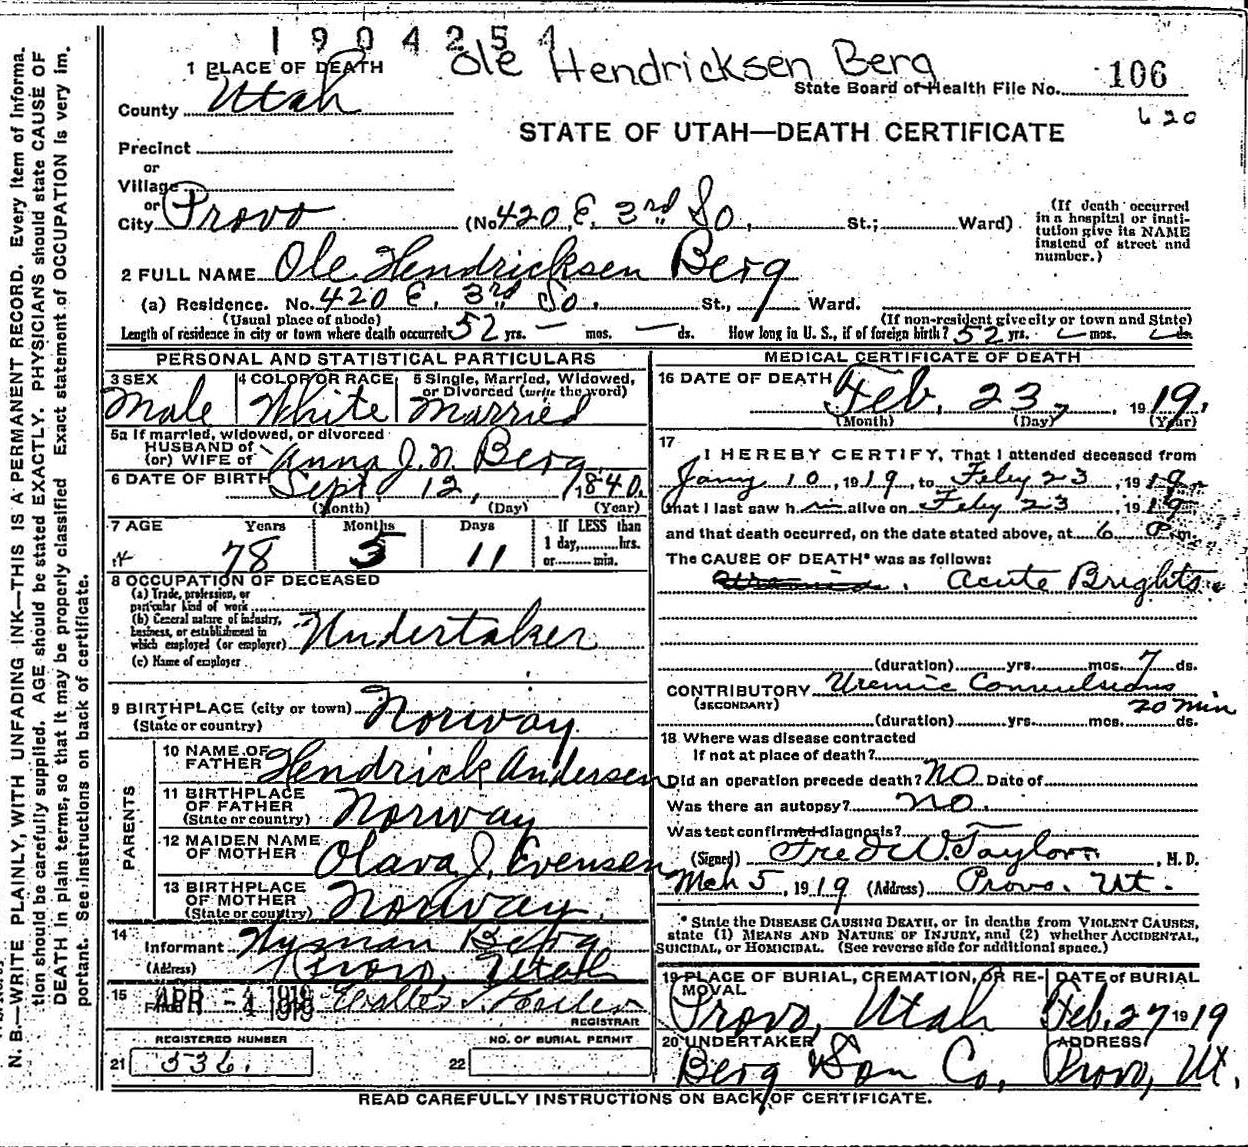 1904254
Ole Hendricksen Berg
1 PLACE OF DEATH
State Board of Health File No. 106
County Utah
620
STATE OF UTAH—DEATH CERTIFICATE
Precinct
or
Village
or
City Provo (No. 420 E. 3rd So, St.; Ward)
(If death occurred in a hospital or insti-
tution give its NAME instead of street and number.)
2 FULL NAME Ole Hendricksen Berg
(a) Residence. No. 420 E. 3rd So. St., Ward.
(Usual place of abode) (If non-resident give city or town and State)
Length of residence in city or town where death occurred 52 yrs. — mos. — ds. How long in U. S., if of foreign birth? 52 yrs. mos. ds.
PERSONAL AND STATISTICAL PARTICULARS
3 SEX Male
4 COLOR OR RACE White
5 Single, Married, Widowed, or Divorced (write the word) Married
5a If married, widowed, or divorced
HUSBAND of
(or) WIFE of Anna J. N. Berg
6 DATE OF BIRTH Sept. 12, 1840.
(Month) (Day) (Year)
7 AGE Years Months Days If LESS than
78 5 11 1 day, hrs.
or min.
8 OCCUPATION OF DECEASED
(a) Trade, profession, or
particular kind of work
(b) General nature of industry,
business, or establishment in
which employed (or employer) Undertaker
(c) Name of employer
9 BIRTHPLACE (city or town) Norway
(State or country)
PARENTS
10 NAME OF FATHER Hendrick Andersen
11 BIRTHPLACE OF FATHER (State or country) Norway
12 MAIDEN NAME OF MOTHER Olava J. Evensen
13 BIRTHPLACE OF MOTHER (State or country) Norway
14 Informant Wyman Berg
(Address) Provo, Utah
15 Filed APR -4 1919
REGISTRAR
REGISTERED NUMBER NO. OF BURIAL PERMIT
21 336. 22
MEDICAL CERTIFICATE OF DEATH
16 DATE OF DEATH Feb, 23, 1919,
(Month) (Day) (Year)
17 I HEREBY CERTIFY, That I attended deceased from
Jany 10, 1919, to Feby 23, 1919
that I last saw him alive on Feby 23, 1919
and that death occurred, on the date stated above, at 6 P m.
The CAUSE OF DEATH* was as follows:
Acute Brights.
(duration) yrs. mos. 7 ds.
CONTRIBUTORY Uremic Convulsions.
(SECONDARY) 20 min
(duration) yrs. mos. ds.
18 Where was disease contracted
If not at place of death?
Did an operation precede death? NO Date of
Was there an autopsy? no.
Was test confirmed diagnosis?
(Signed) Fred W. Taylor, M. D.
Mch 5, 1919 (Address) Provo. Ut.
* State the DISEASE CAUSING DEATH, or in deaths from VIOLENT CAUSES,
state (1) MEANS AND NATURE OF INJURY, and (2) whether ACCIDENTAL,
SUICIDAL, or HOMICIDAL. (See reverse side for additional space.)
19 PLACE OF BURIAL, CREMATION, OR RE-
MOVAL
Provo, Utah
DATE of BURIAL
Feb. 27 1919
20 UNDERTAKER
Berg & Son Co,
ADDRESS
Provo, Ut.
READ CAREFULLY INSTRUCTIONS ON BACK OF CERTIFICATE.
N. B.—WRITE PLAINLY, WITH UNFADING INK—THIS IS A PERMANENT RECORD. Every item of informa-
tion should be carefully supplied. AGE should be stated EXACTLY. PHYSICIANS should state CAUSE OF
DEATH in plain terms, so that it may be properly classified. Exact statement of OCCUPATION is very im-
portant. See instructions on back of certificate.